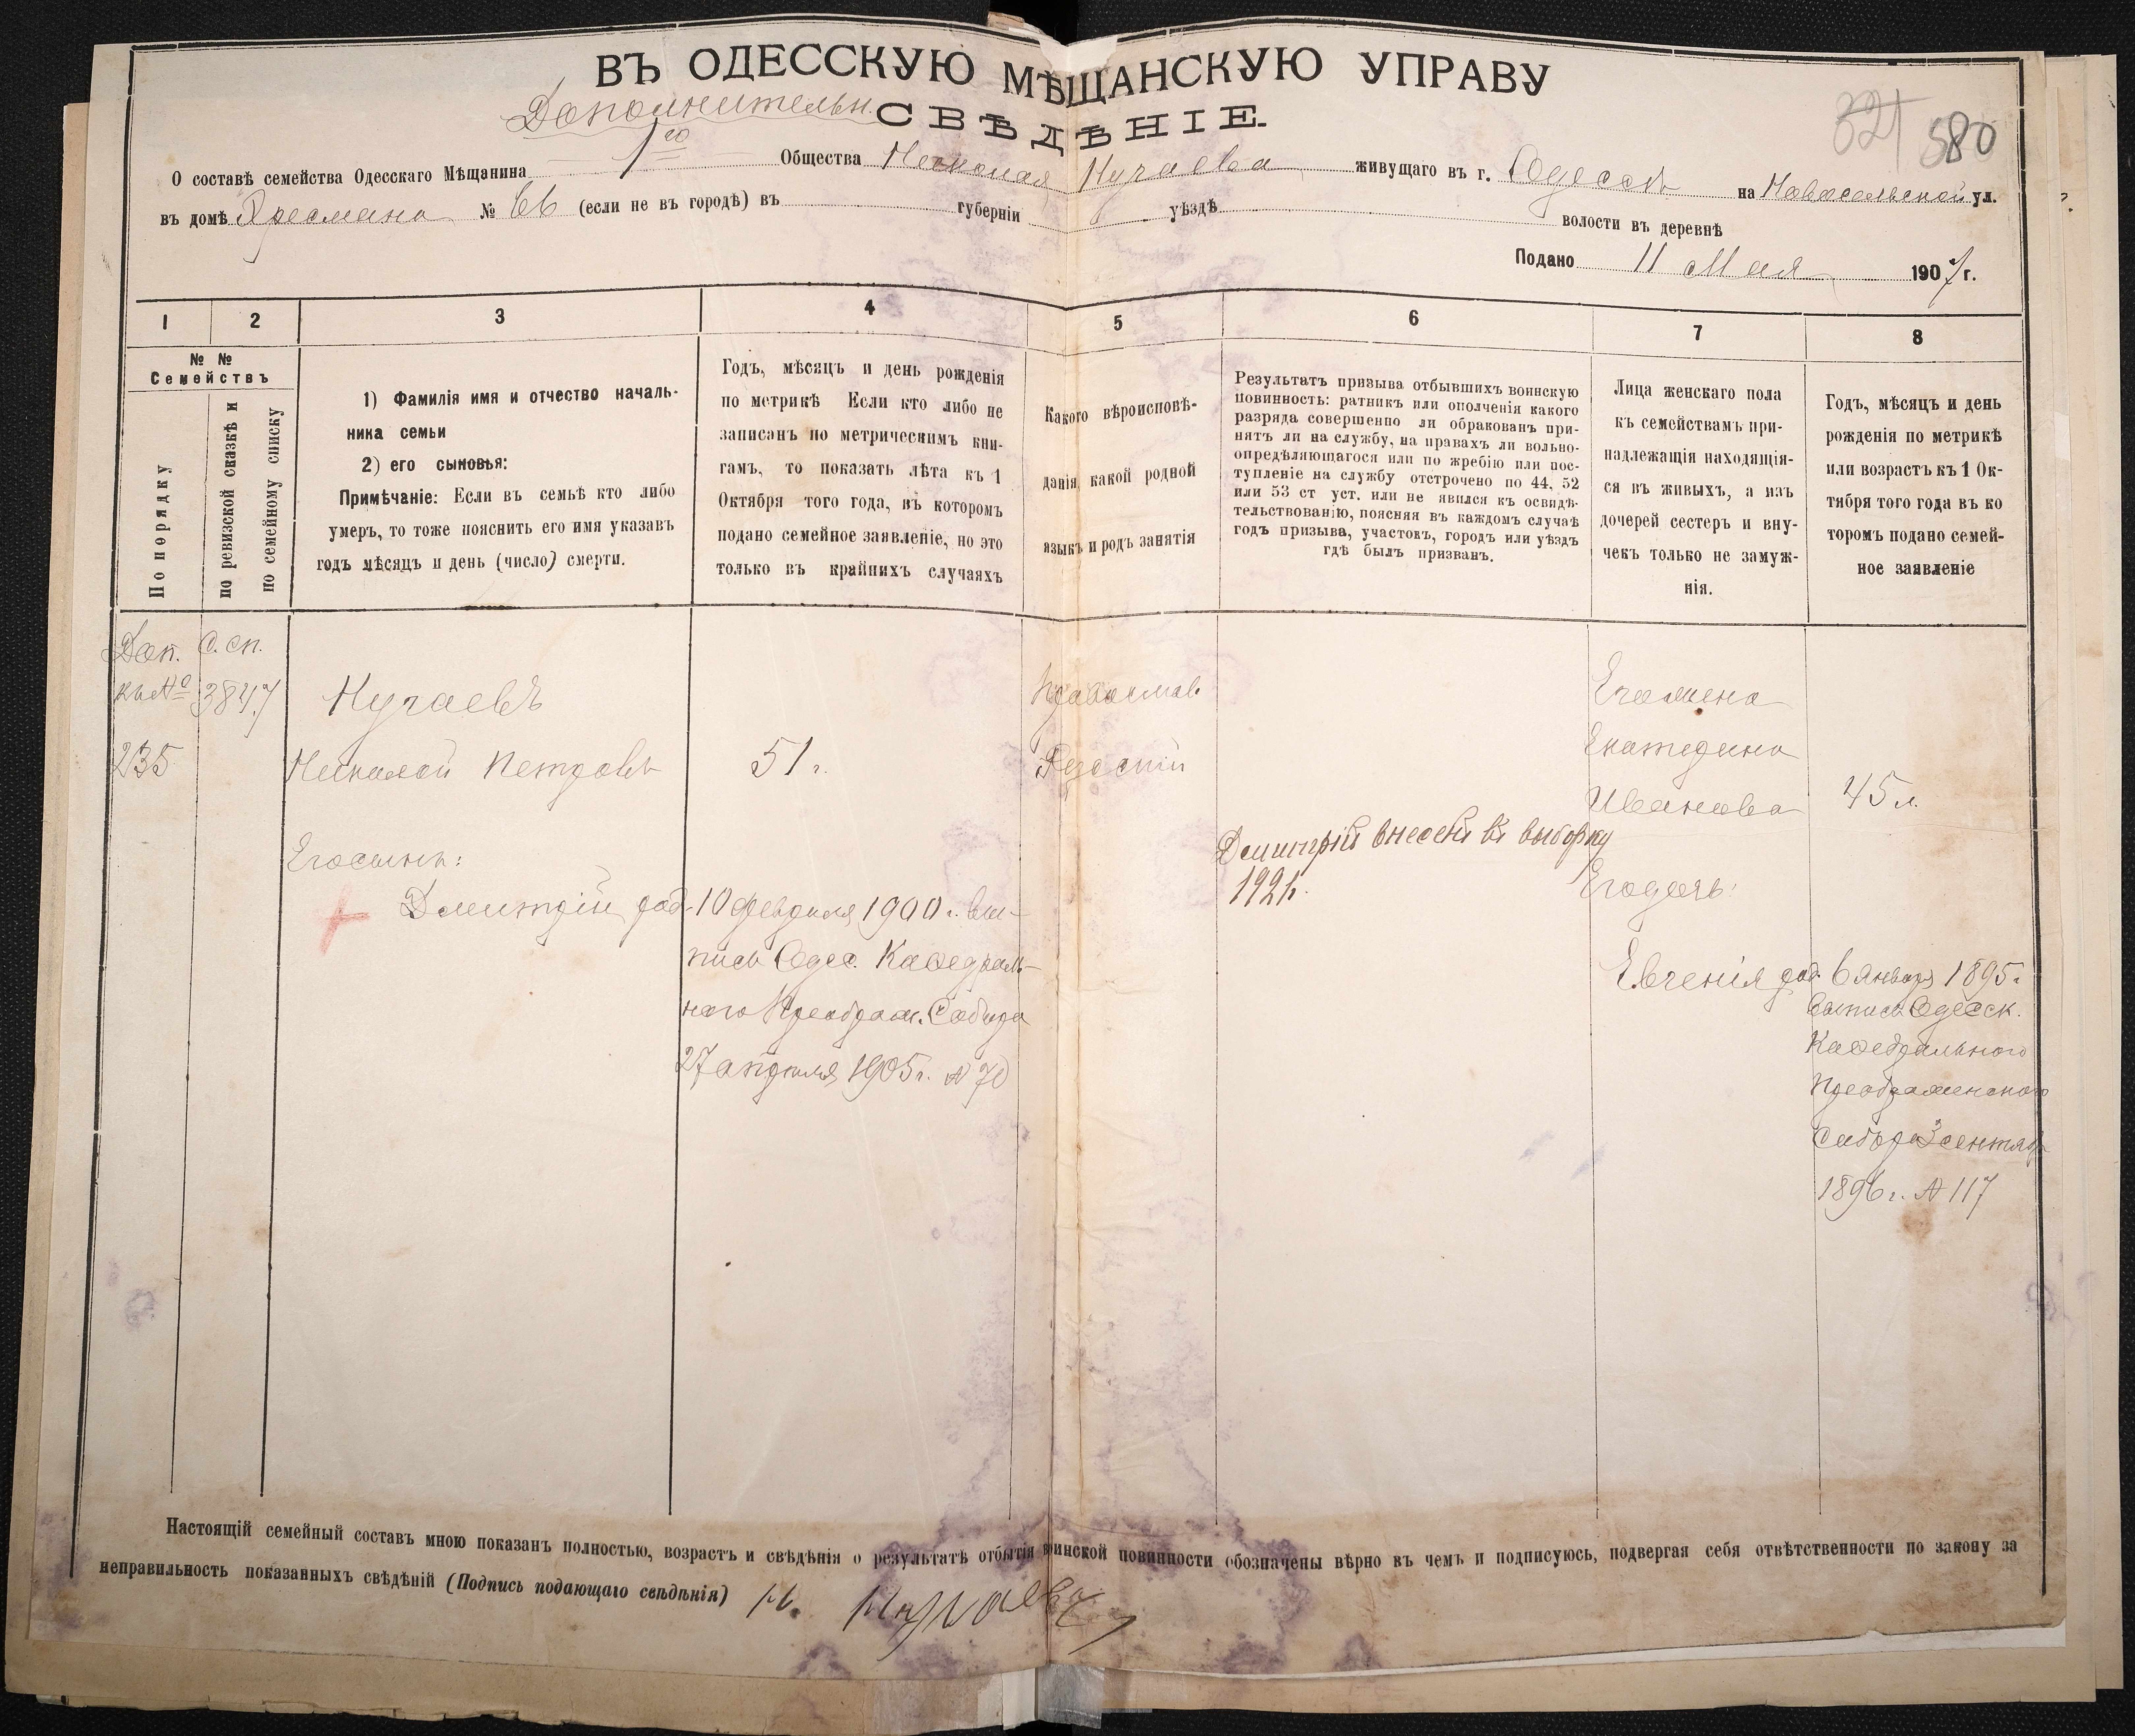 ВЪ ОДЕССКУЮ МѢЩАНСКУЮ УПРАВУ
Дополнительн. СВѢДѢНІЕ.
321 580
О составѣ семейства Одесскаго Мѣщанина 1го Общества Николая Нугаева живущаго въ г. Одессѣ на Новосельской ул.
въ домѣ № 66 (если не въ городѣ) въ губерніи уѣздѣ волости въ деревнѣ
Подано 11 Мая 1907 г.
1 2 3 4 5 6 7 8
№ №
Семействъ
По порядку
по ревизской сказкѣ и
по семейному списку
1) Фамилія имя и отчество началь-
ника семьи
2) его сыновья:
Примѣчаніе: Если въ семьѣ кто либо
умеръ, то тоже пояснить его имя указавъ
годъ мѣсяцъ и день (число) смерти.
Годъ, мѣсяцъ и день рожденія
по метрикѣ Если кто либо не
записанъ по метрическимъ кни-
гамъ, то показать лѣта къ 1
Октября того года, въ которомъ
подано семейное заявленіе, но это
только въ крайнихъ случаяхъ
Какого вѣроисповѣ-
данія, какой родной
языкъ и родъ занятія
Результатъ призыва отбывшихъ воинскую
повинность: ратникъ или ополченія какого
разряда совершенно ли обракованъ при-
нятъ ли на службу, на правахъ ли вольно-
опредѣляющагося или по жребію или пос-
тупленіе на службу отстрочено по 44, 52
или 53 ст уст. или не явился къ освидѣ-
тельствованію, поясняя въ каждомъ случаѣ
годъ призыва, участокъ, городъ или уѣздъ
гдѣ былъ призванъ.
Лица женскаго пола
къ семействамъ при-
надлежащія находящія-
ся въ живыхъ, а изъ
дочерей сестеръ и вну-
чекъ только не замуж-
нія.
Годъ, мѣсяцъ и день
рожденія по метрикѣ
или возрастъ къ 1 Ок-
тября того года въ ко
торомъ подано семей-
ное заявленіе
Доп. С. сп.
къ № 3847
235
Нугаевъ
Николай Петровъ
51 г.
Православ
Русскій
Его жена
Екатерина
Иванова
45 л.
Его сынъ:
Дмитрій род. 10 февраля 1900 г. вы-
пись Одес. Каѳедраль-
наго Преображ. Собора
27 апрѣля 1905 г. № 70
Дмитрій внесенъ въ выборку
1921 г.
Его дочь:
Евгенія род. 6 января 1895 г.
выпись Одесск.
Каѳедральнаго
Преображенскаго
Собора 3 сентяб
1896 г. № 117
Настоящій семейный составъ мною показанъ полностью, возрастъ и свѣдѣнія о результатѣ отбытія воинской повинности обозначены вѣрно въ чемъ и подписуюсь, подвергая себя отвѣтственности по закону за
неправильность показанныхъ свѣдѣній (Подпись подающаго свѣдѣнія) Н. Нугаевъ